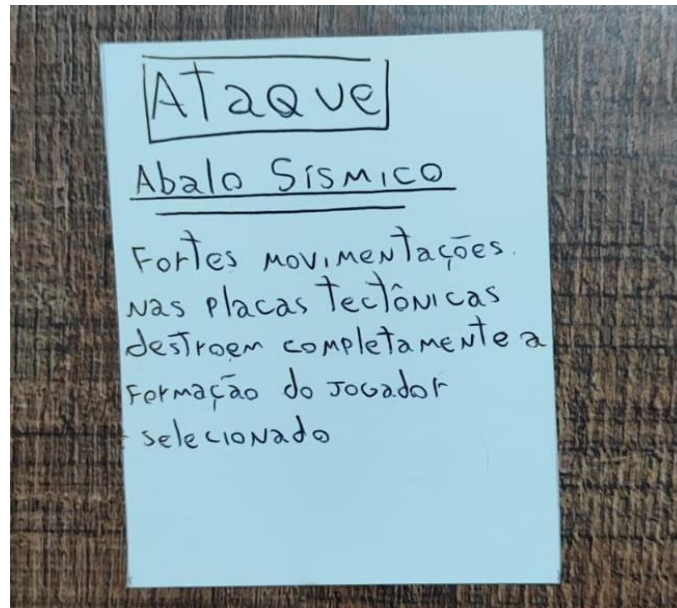 ATaque
Abalo Sísmico
Fortes movimentações.
nas placas tectônicas
destroem completamente a
Formação do Jogador
selecionado